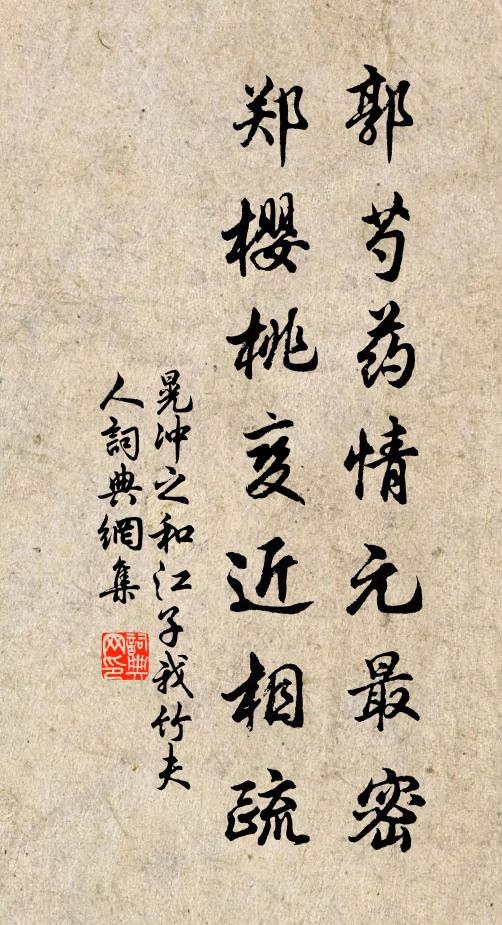 郭芍药情元最密
郑樱桃变近相疏
晁冲之和江子我竹夫
人詞典網集
詞典網印